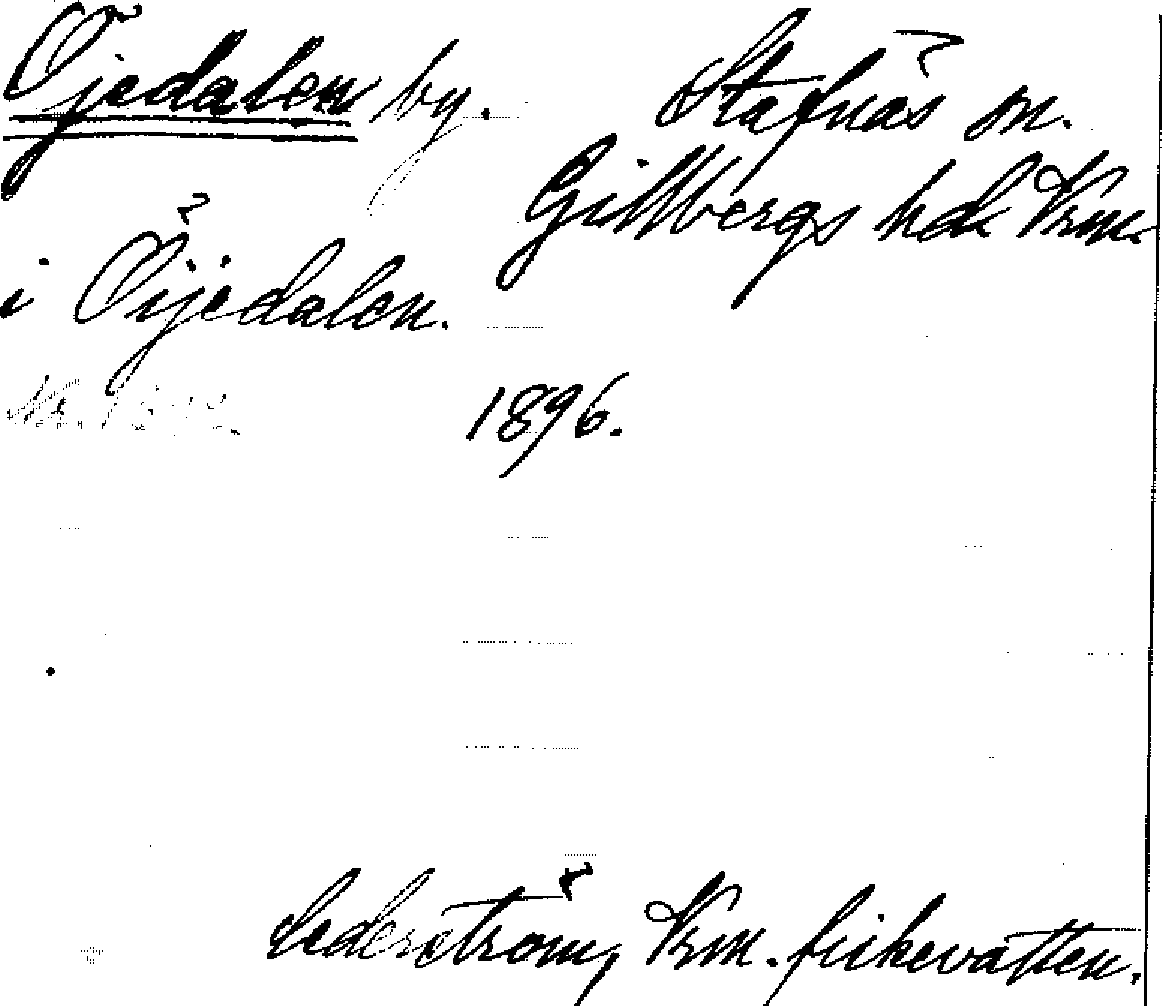 Öjedalen by. Stafnäs sn.
Gillbergs hd. Vrm.
i Öijedalen.
1896.
Cederström, Vrm. fiskevatten.